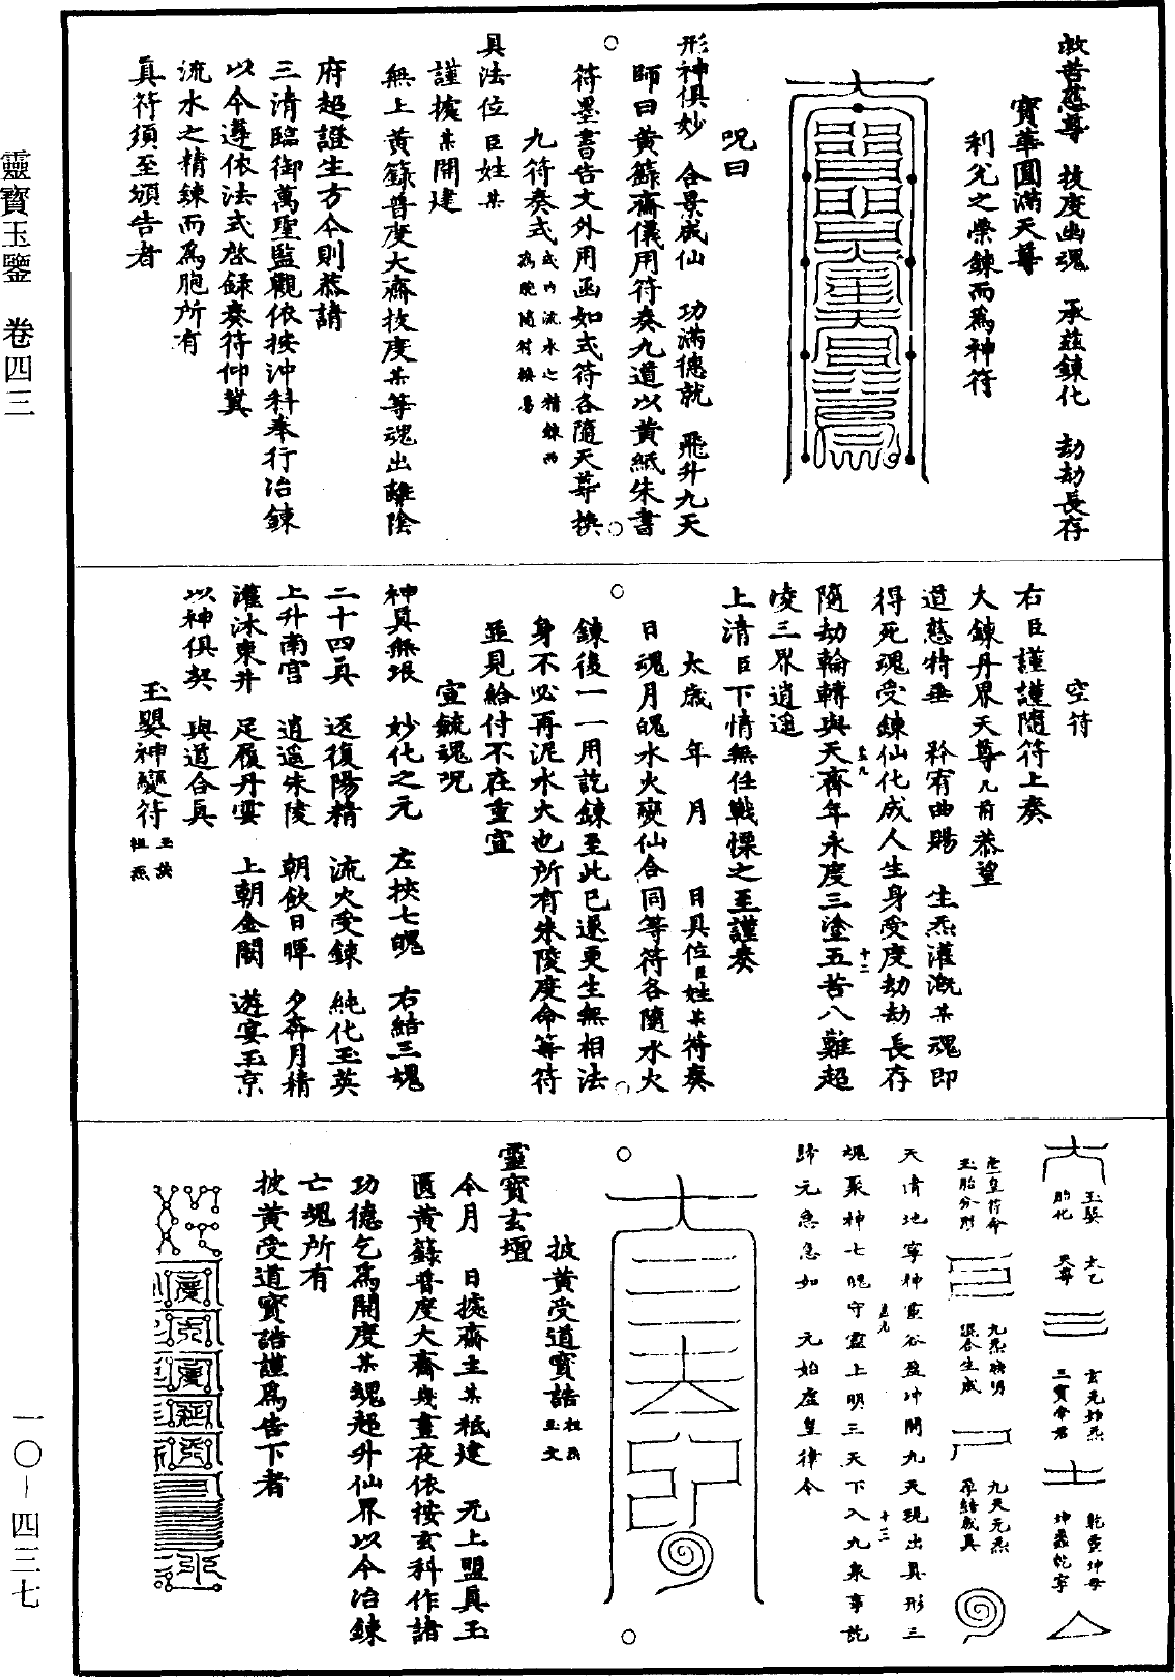 救苦慈尊　拔度幽魂　承茲鍊化　劫劫長存
寶華圓滿天尊
利兌之榮鍊而為神符
呪曰
形神俱妙　合景成仙　功滿德就　飛升九天
師曰黃籙齋儀用符奏九道以黃紙朱書
符墨書告文外用函如式符各隨天尊換
九符奏式式內流水之精鍊而為胞隨符換易
具法位臣姓某
謹據某開建
無上黃籙普度大齋拔度某等魂出離陰
府超證生方今則恭請
三清臨御萬聖監觀依按沖科奉行冶鍊
以今遵依法式啓錄奏符仰冀
流水之精鍊而為胞所有
真符須至頒告者
空符
右臣謹謹隨符上奏
大鍊丹界天尊几前恭望
道慈特垂　矜宥曲賜　生炁灌溉某魂即
得死魂受鍊仙化成人生身受度劫劫長存
隨劫輪轉與天齊年永度三塗五苦八難超
凌三界逍遙
上清臣下情無任戰慄之至謹奏
太歲　年　月　日具位臣姓某符奏
日魂月魄水火變仙合同等符各隨水火
鍊後一一用訖鍊至此已還更生無相法
身不必再泥水火也所有朱陵度命等符
並見給付不在重宣
宣毓魂呪
神真無垠　妙化之元　左挾七魄　右結三魂
二十四真　返復陽精　流火受鍊　純化玉英
上升南宮　逍遙朱陵　朝飲日暉　夕奔月精
灌沐東井　足履丹雲　上朝金闕　遊宴玉京
以神俱契　與道合真
玉嬰神變符玉訣祖炁
玉嬰胎化　太乙天尊　玄元始炁三寶帝君　乾靈坤母坤震乾寧
虛皇符命玉胎分形　九炁映明混合生成　九天元炁孕結成真
天清地寧神靈谷盈沖開九天現出真形三
魂聚神七魄守靈上明三天下入九泉事訖
歸元急急如　元始虛皇律令
披黃受道寶誥祖炁玉文
靈寶玄壇
今月　日據齋主某祗建　无上盟真玉
匱黃籙普度大齋幾晝夜依按玄科作諸
功德乞為開度某魂超升仙界以今冶鍊
亡魂所有
披黃受道寶誥謹為告下者
靈寶玉鑒　卷四三
一〇－四三七